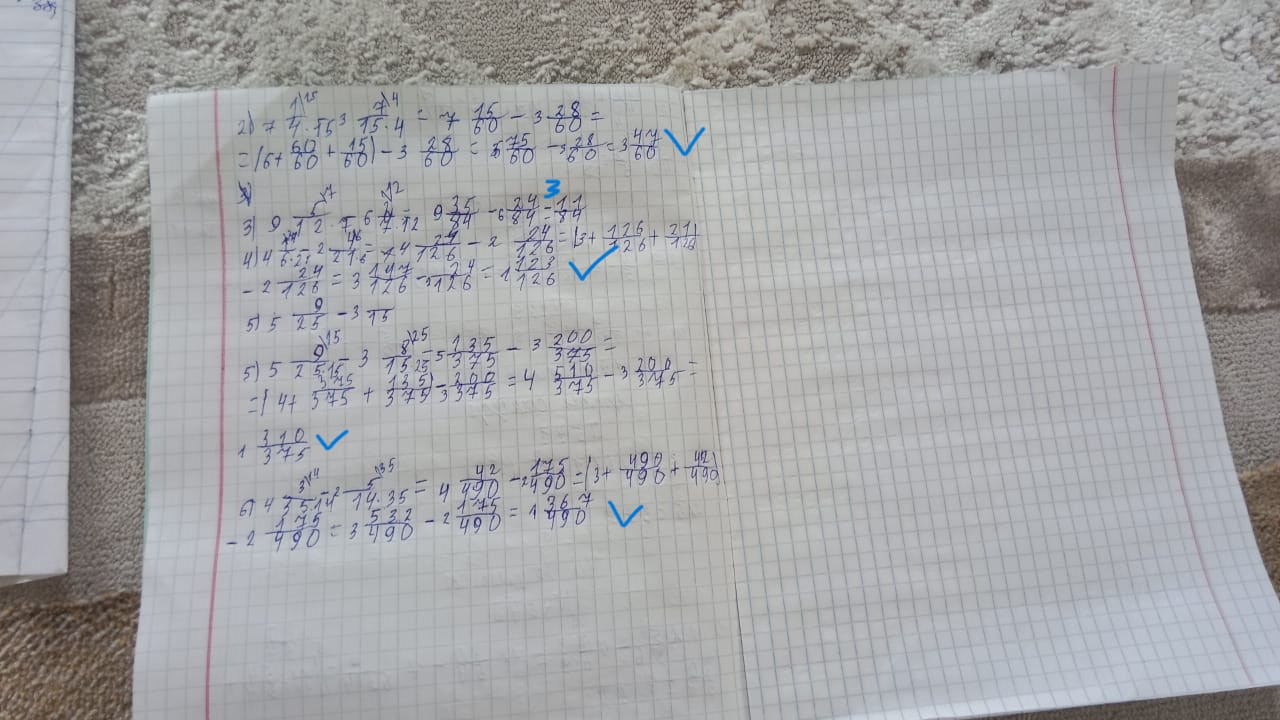 2) 7 1/4·15 3 7/15·4 = 7 15/60 - 3 28/60 =
= (6 + 60/60 + 15/60) - 3 28/60 = 6 75/60 - 3 28/60 = 3 47/60
3) 9 5/12·7 - 6 2/7·12 = 9 35/84 - 6 24/84 = 3 11/84
4) 4 /6·21 - 2 4/21·6 = 4 21/126 - 2 24/126 = (3 + 126/126 + 21/126)
- 2 24/126 = 3 147/126 - 2 24/126 = 1 123/126
5) 5 9/25 - 3 /15
5) 5 9/25·15 - 3 8/15·25 = 5 135/375 - 3 200/375 =
= (4 + 375/375 + 135/375) - 3 200/375 = 4 510/375 - 3 200/375 =
1 310/375
6) 4 3/35·14 - 2 5/14·35 = 4 42/490 - 2 175/490 = (3 + 490/490 + 42/490)
- 2 175/490 = 3 532/490 - 2 175/490 = 1 367/490